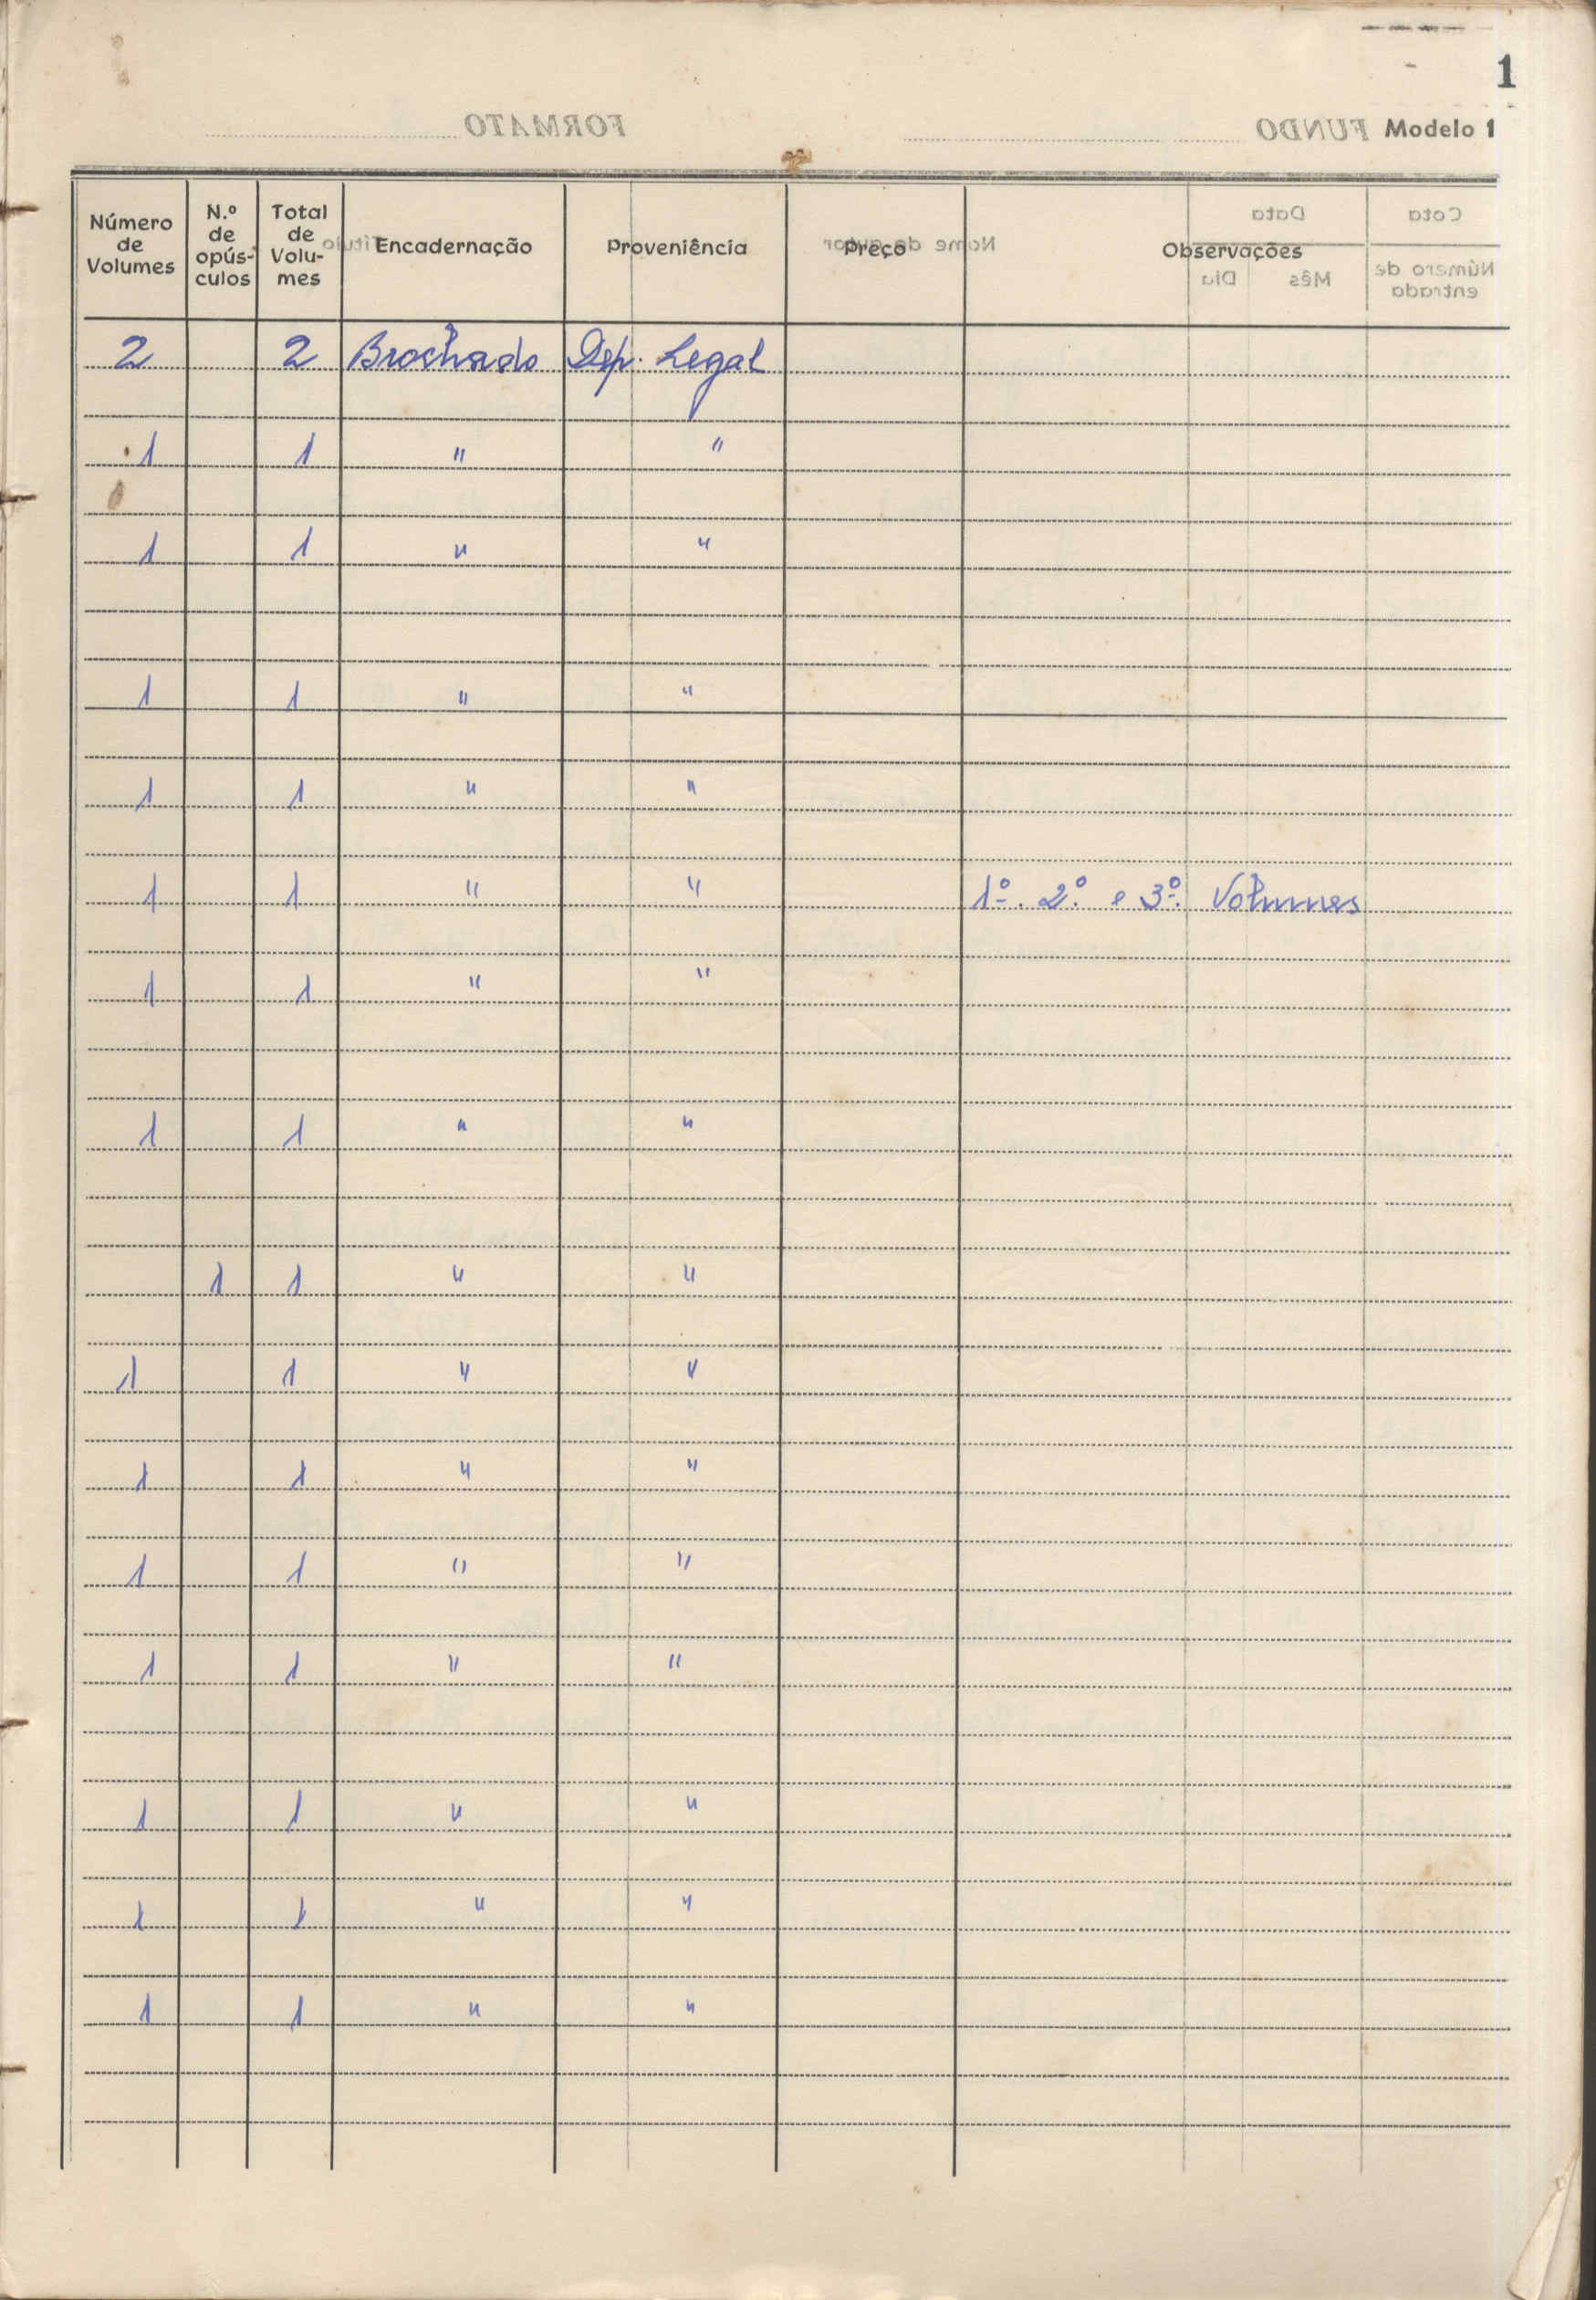 1
Modelo 1
Número de Volumes N.º de opús-culos Total de Volu-mes Encadernação Proveniência Preço Observações
2 2 Brochado Dep. Legal
1 1 " "
1 1 " "
1 1 " "
1 1 " "
1 1 " " 1º. 2º. e 3º. Volumes
1 1 " "
1 1 " "
1 1 " "
1 1 " "
1 1 " "
1 1 " "
1 1 " "
1 1 " "
1 1 " "
1 1 " "